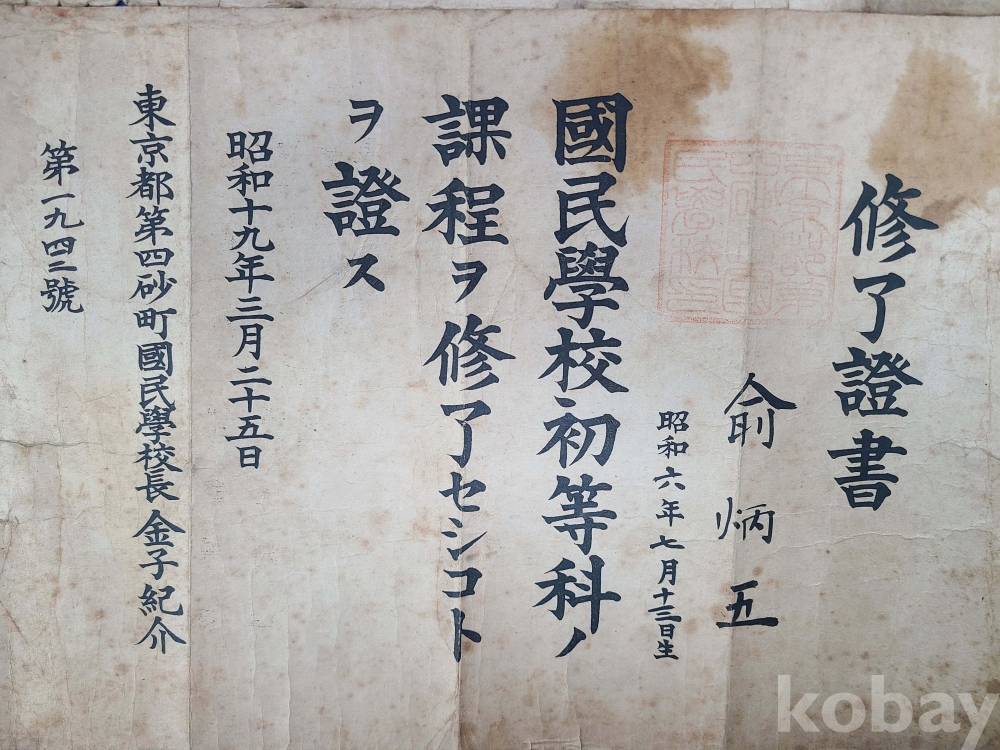 修了證書
俞炳五
昭和六年七月十三日生
國民學校初等科ノ
課程ヲ修了セシコト
ヲ證ス
昭和十九年三月二十五日
東京都第四砂町國民學校長 金子紀介
第一九四二號
kobay